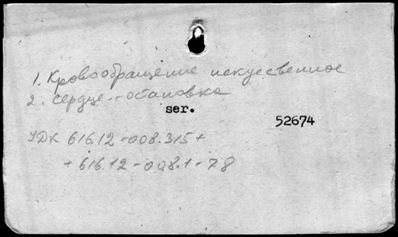 1. Кровообращение искусственное
2. Сердце - остановка
ser.
52674
УДК 616.12-008.315+
+616.12-008.1-78